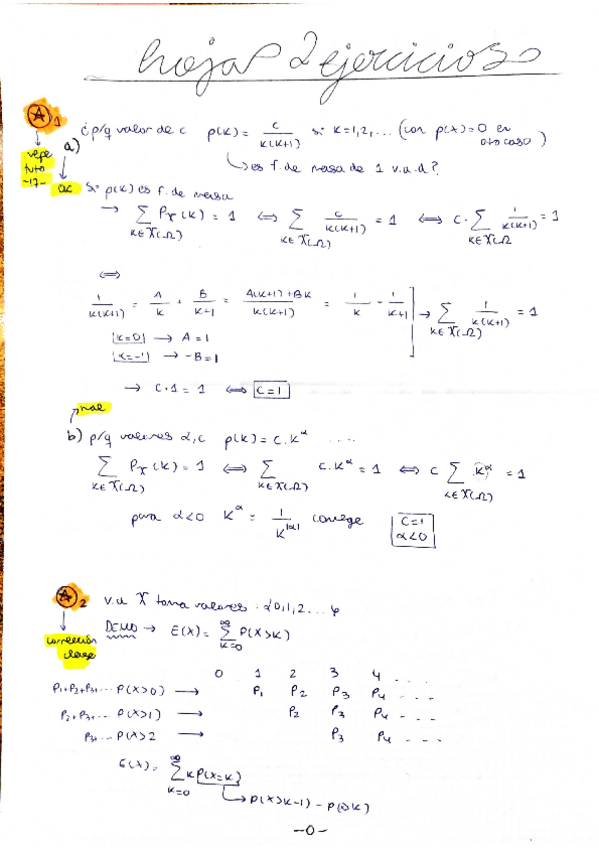 hojas 2 ejercicios
A 1
¿p/q valor de c p(k) = c / k(k+1) si k=1,2,... (con p(x)=0 en otro caso)
repe tuto -17-
a)
→ es f. de masa de 1 v.a.d?
ok
Si p(k) es f. de masa
→ ∑_{k∈X(Ω)} P_X(k) = 1 ⟺ ∑_{k∈X(Ω)} c / k(k+1) = 1 ⟺ c · ∑_{k∈X(Ω)} 1 / k(k+1) = 1
⟺
1 / k(k+1) = A/k + B/k+1 = A(k+1)+Bk / k(k+1) = 1/k - 1/k+1 ] → ∑_{k∈X(Ω)} 1 / k(k+1) = 1
|k=0| → A=1
|k=-1| → -B=1
→ c·1 = 1 ⟺ c=1
mal
b) p/q valores α,c p(k) = c·k^α ....
∑_{k∈X(Ω)} P_X(k) = 1 ⟺ ∑_{k∈X(Ω)} c·k^α = 1 ⟺ c ∑_{k∈X(Ω)} k^α = 1
para α<0 k^α = 1 / k^|α| converge
c=1
α<0
A 2
v.a X toma valores: {0,1,2...}
DEMO → E(X) = ∑_{k=0}^∞ P(X>k)
corrección clase
0 1 2 3 4 ....
P₁+P₂+P₃... P(X>0) → P₁ P₂ P₃ P₄ ...
P₂+P₃... P(X>1) → P₂ P₃ P₄ ...
P₃... P(X>2 → P₃ P₄ ...
E(X) = ∑_{k=0}^∞ k P(X=k)
→ P(X>k-1) - P(X>k)
-0-